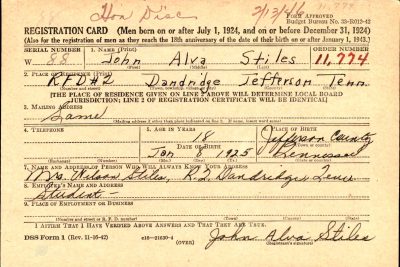 Hon Disc 2/13/46
Form Approved
Budget Bureau No. 33-R012-42
REGISTRATION CARD (Men born on or after July 1, 1924, and on or before December 31, 1924)
(Also for the registration of men as they reach the 18th anniversary of the date of their birth on or after January 1, 1943.)
SERIAL NUMBER 1. NAME (Print) ORDER NUMBER
W 88 John Alva Stiles 11,774
(First) (Middle) (Last)
2. PLACE OF RESIDENCE (Print)
RFD #2 Dandridge Jefferson Tenn.
[THE PLACE OF RESIDENCE GIVEN ON LINE 2 ABOVE WILL DETERMINE LOCAL BOARD
JURISDICTION; LINE 2 OF REGISTRATION CERTIFICATE WILL BE IDENTICAL]
3. MAILING ADDRESS
Same
[Mailing address if other than place indicated on line 2. If same, insert word same]
4. TELEPHONE 5. AGE IN YEARS 6. PLACE OF BIRTH
18 Jefferson County
DATE OF BIRTH (Town or county)
Jan 8 1925 Tennessee
(Exchange) (Number) (Mo.) (Day) (Yr.) (State or country)
7. NAME AND ADDRESS OF PERSON WHO WILL ALWAYS KNOW YOUR ADDRESS
Mrs Wilson Stiles, R2 Dandridge, Tenn
8. EMPLOYER'S NAME AND ADDRESS
Student
9. PLACE OF EMPLOYMENT OR BUSINESS
(Number and street or R. F. D. number) (Town) (County) (State)
I AFFIRM THAT I HAVE VERIFIED ABOVE ANSWERS AND THAT THEY ARE TRUE.
DSS Form 1 (Rev. 11-16-42) (OVER) John Alva Stiles
(Registrant's signature)